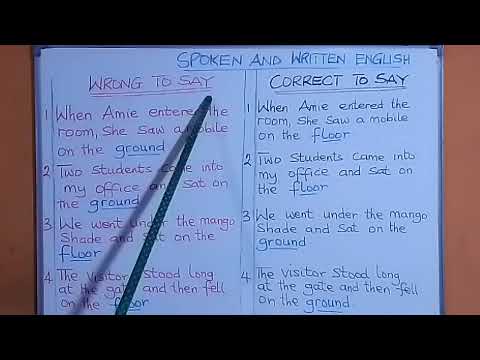 SPOKEN AND WRITTEN ENGLISH
WRONG TO SAY
1 When Amie entered the
room, She saw a mobile
on the ground
2 Two Students came into
my office and sat on
the ground
3 We went under the mango
Shade and sat on the
floor
4 The visitor stood long
at the gate and then fell
on the floor
CORRECT TO SAY
1 When Amie entered the
room, She saw a mobile
on the floor
2 Two Students came into
my office and sat on
the floor
3 We went under the mango
Shade and sat on the
ground
4 The visitor stood long
at the gate and then fell
on the ground